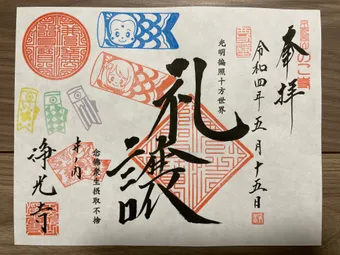 奉拝
令和四年五月十五日
光明徧照十方世界
礼讃
念佛衆生摂取不捨
木之内
浄光寺